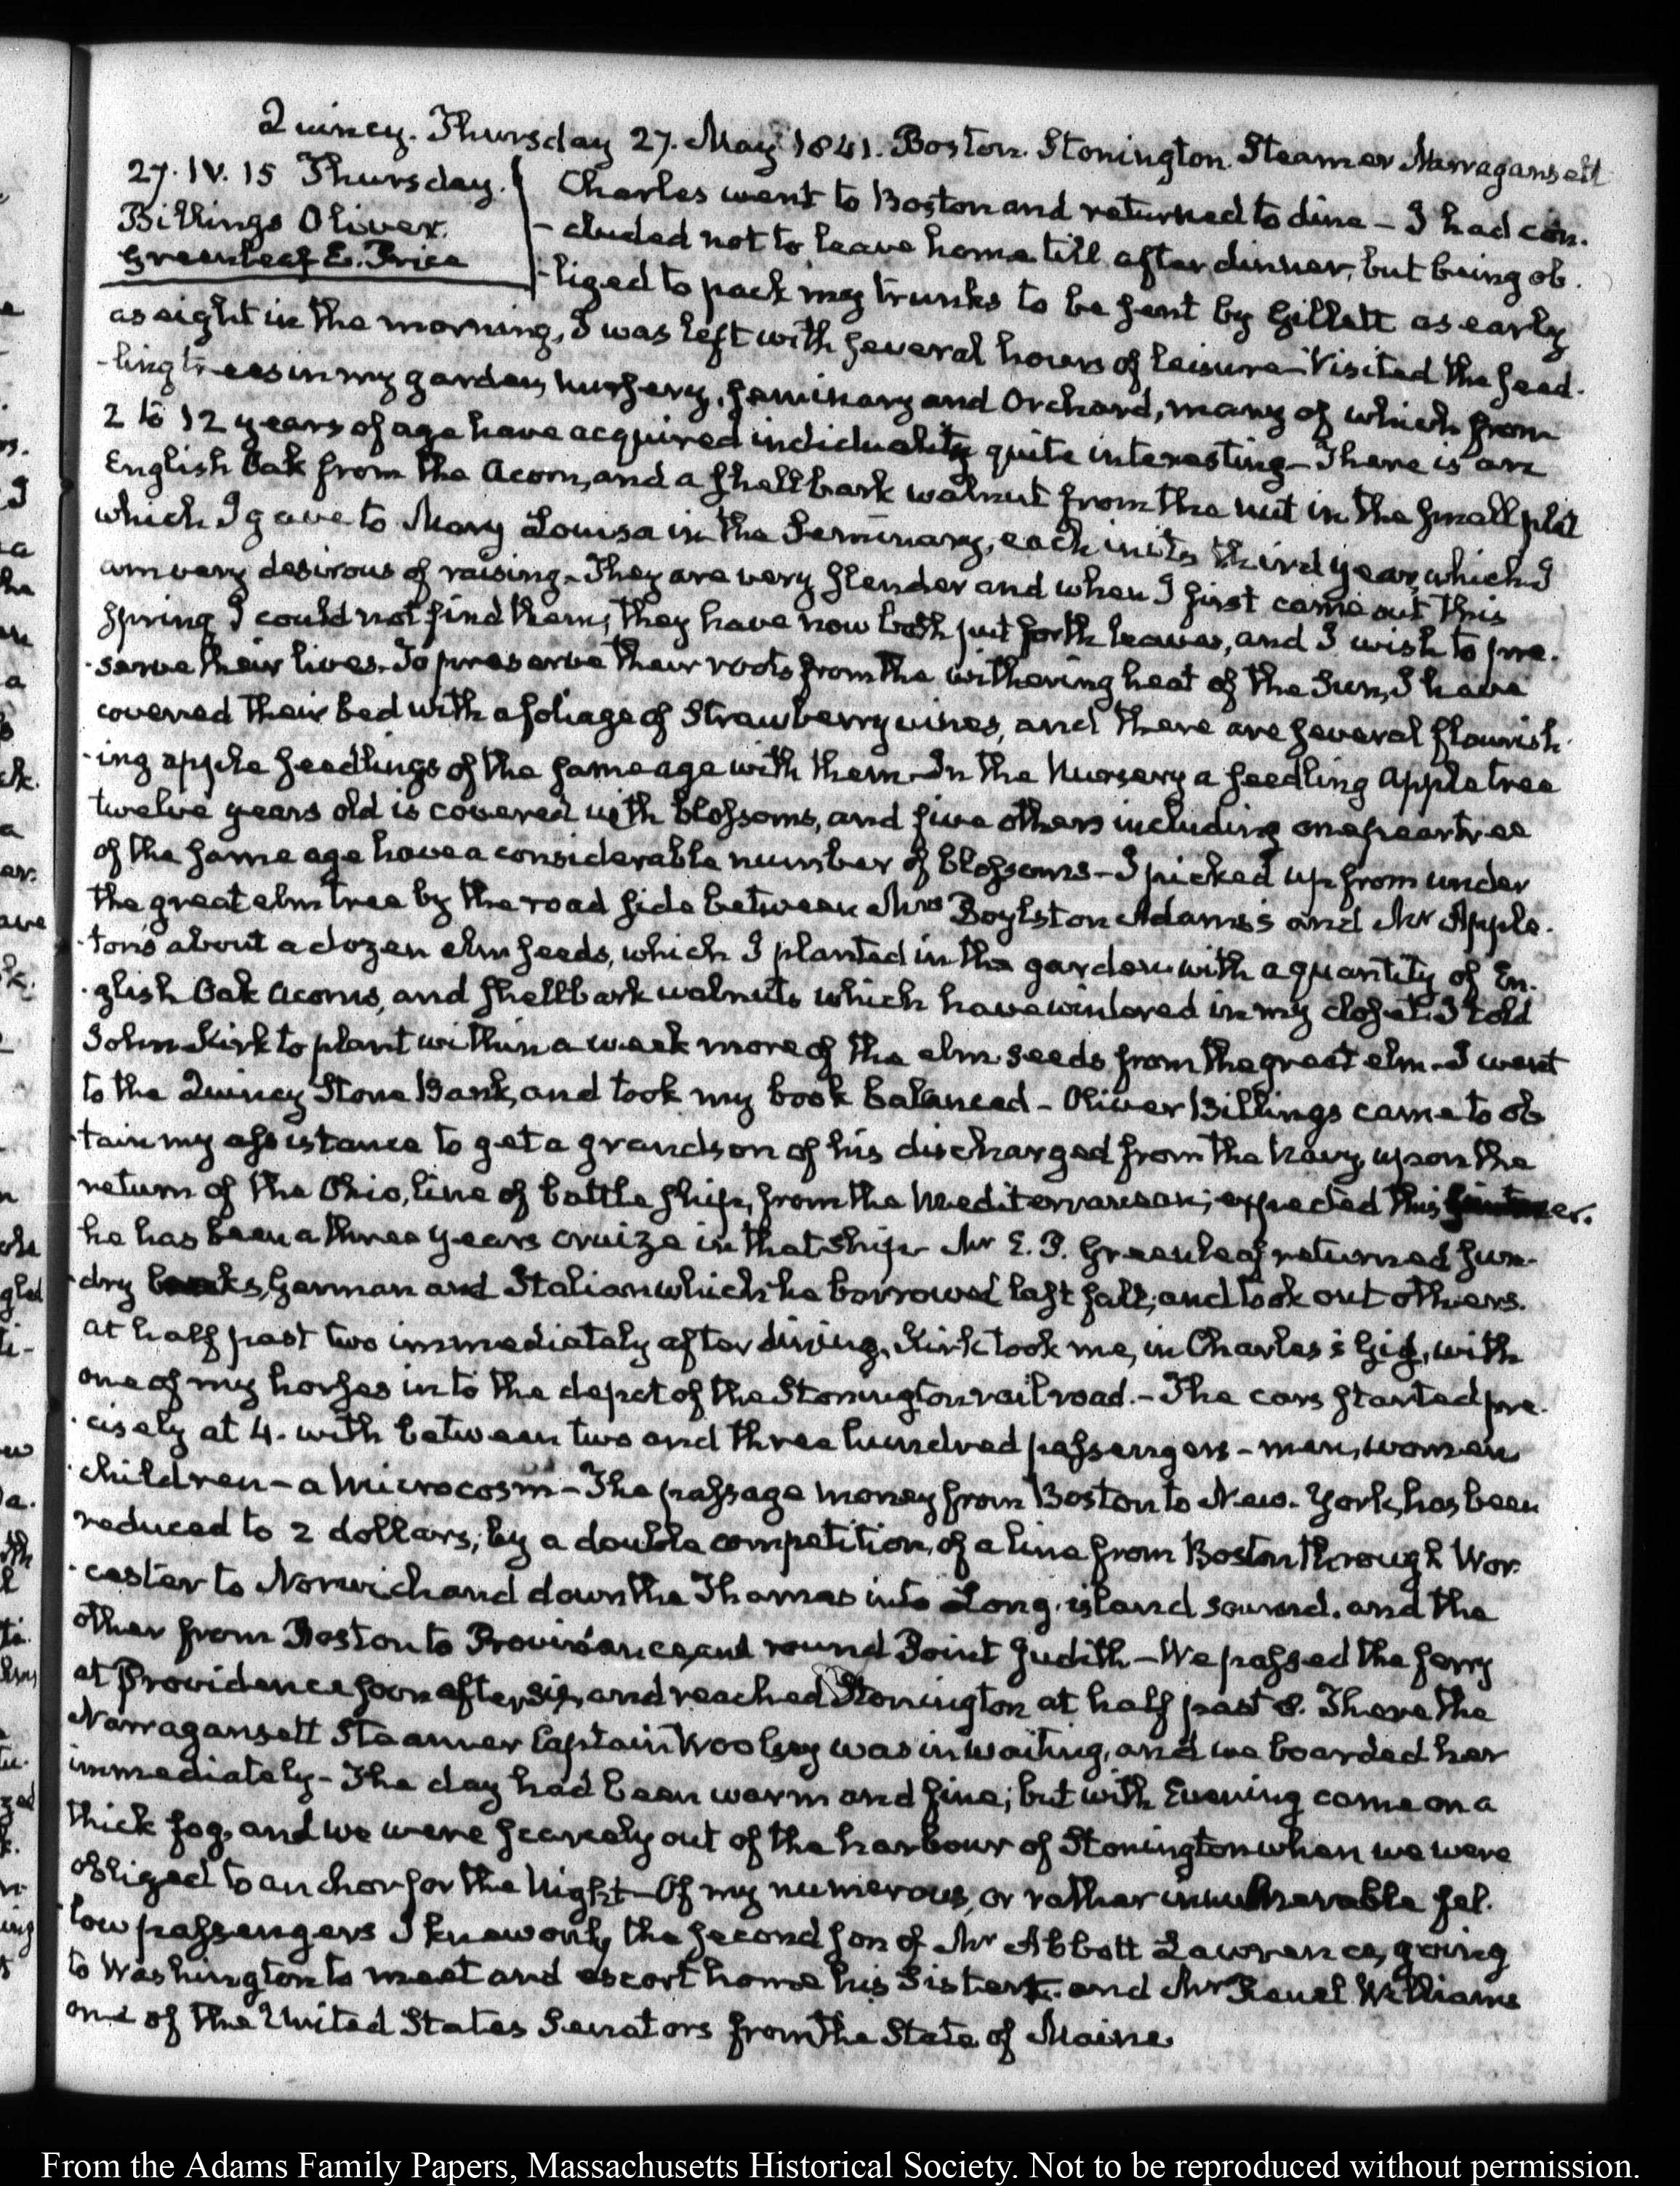 Quincy. Thursday 27. May 1841. Boston. Stonington. Steamer Narragansett
27. IV. 15 Thursday.
Billings Oliver.
Greenleaf E. Price
Charles went to Boston and returned to dine – I had con-
-cluded not to leave home till after dinner, but being ob-
-liged to pack my trunks to be sent by Gillett as early
as eight in the morning, I was left with several hours of leisure – Visited the seed-
-ling trees in my garden, nursery, seminary and Orchard, many of which from
2 to 12 years of age have acquired individuality quite interesting – There is an
English Oak from the Acorn, and a shellbark walnut from the nut in the small plat
which I gave to Mary Louisa in the Seminary, each in its third year, which I
am very desirous of raising – They are very slender and when I first came out this
Spring I could not find them; they have now both put forth leaves, and I wish to pre-
-serve their lives. To preserve their roots from the withering heat of the Sun, I have
covered their bed with a foliage of Strawberry vines, and there are several flourish-
-ing apple seedlings of the same age with them – In the Nursery a seedling Apple tree
twelve years old is covered with blossoms, and five others including one pear tree
of the same age have a considerable number of blossoms – I picked up from under
the great elm tree by the road side between Mrs Boylston Adams's and Mr Apple-
-ton's about a dozen elm seeds, which I planted in the garden with a quantity of En-
-glish Oak Acorns, and shellbark walnuts which have wintered in my closet. I told
John Kirk to plant within a week more of the elm seeds from the great elm – I went
to the Quincy Stone Bank, and took my book balanced – Oliver Billings came to ob
-tain my assistance to get a grandson of his discharged from the Navy, upon the
return of the Ohio, line of battle ship, from the Mediterranean; expected this
he has been a three years cruize in that Ship – Mr E. P. Greenleaf returned sun-
-dry books, German and Italian which he borrowed last fall, and took out others.
At half past two immediately after dining, Kirk took me, in Charles's Gig, with
one of my horses in to the depot of the Stonington rail road. – The cars started pre-
-cisely at 4. with between two and three hundred passengers – men, women
children – a Microcosm – The passage money from Boston to New-York, has been
reduced to 2 dollars; by a double competition, of a line from Boston through Wor-
-cester to Norwich and down the Thames into Long-island sound. and the
other from Boston to Providence, and round Point Judith – We passed the ferry
at Providence soon after six, and reached Stonington at half past 8. There the
Narragansett Steamer Captain Woolsey was in waiting, and we boarded her
immediately – The day had been warm and fine; but with Evening came on a
thick fog, and we were scarcely out of the harbour of Stonington when we were
obliged to anchor for the Night – Of my numerous, or rather innumerable fel-
-low passengers I knew only the second son of Mr Abbott Lawrence, going
to Washington to meet and escort home his Sister. and Mr Reuel Williams
one of the United States Senators from the State of Maine
From the Adams Family Papers, Massachusetts Historical Society. Not to be reproduced without permission.